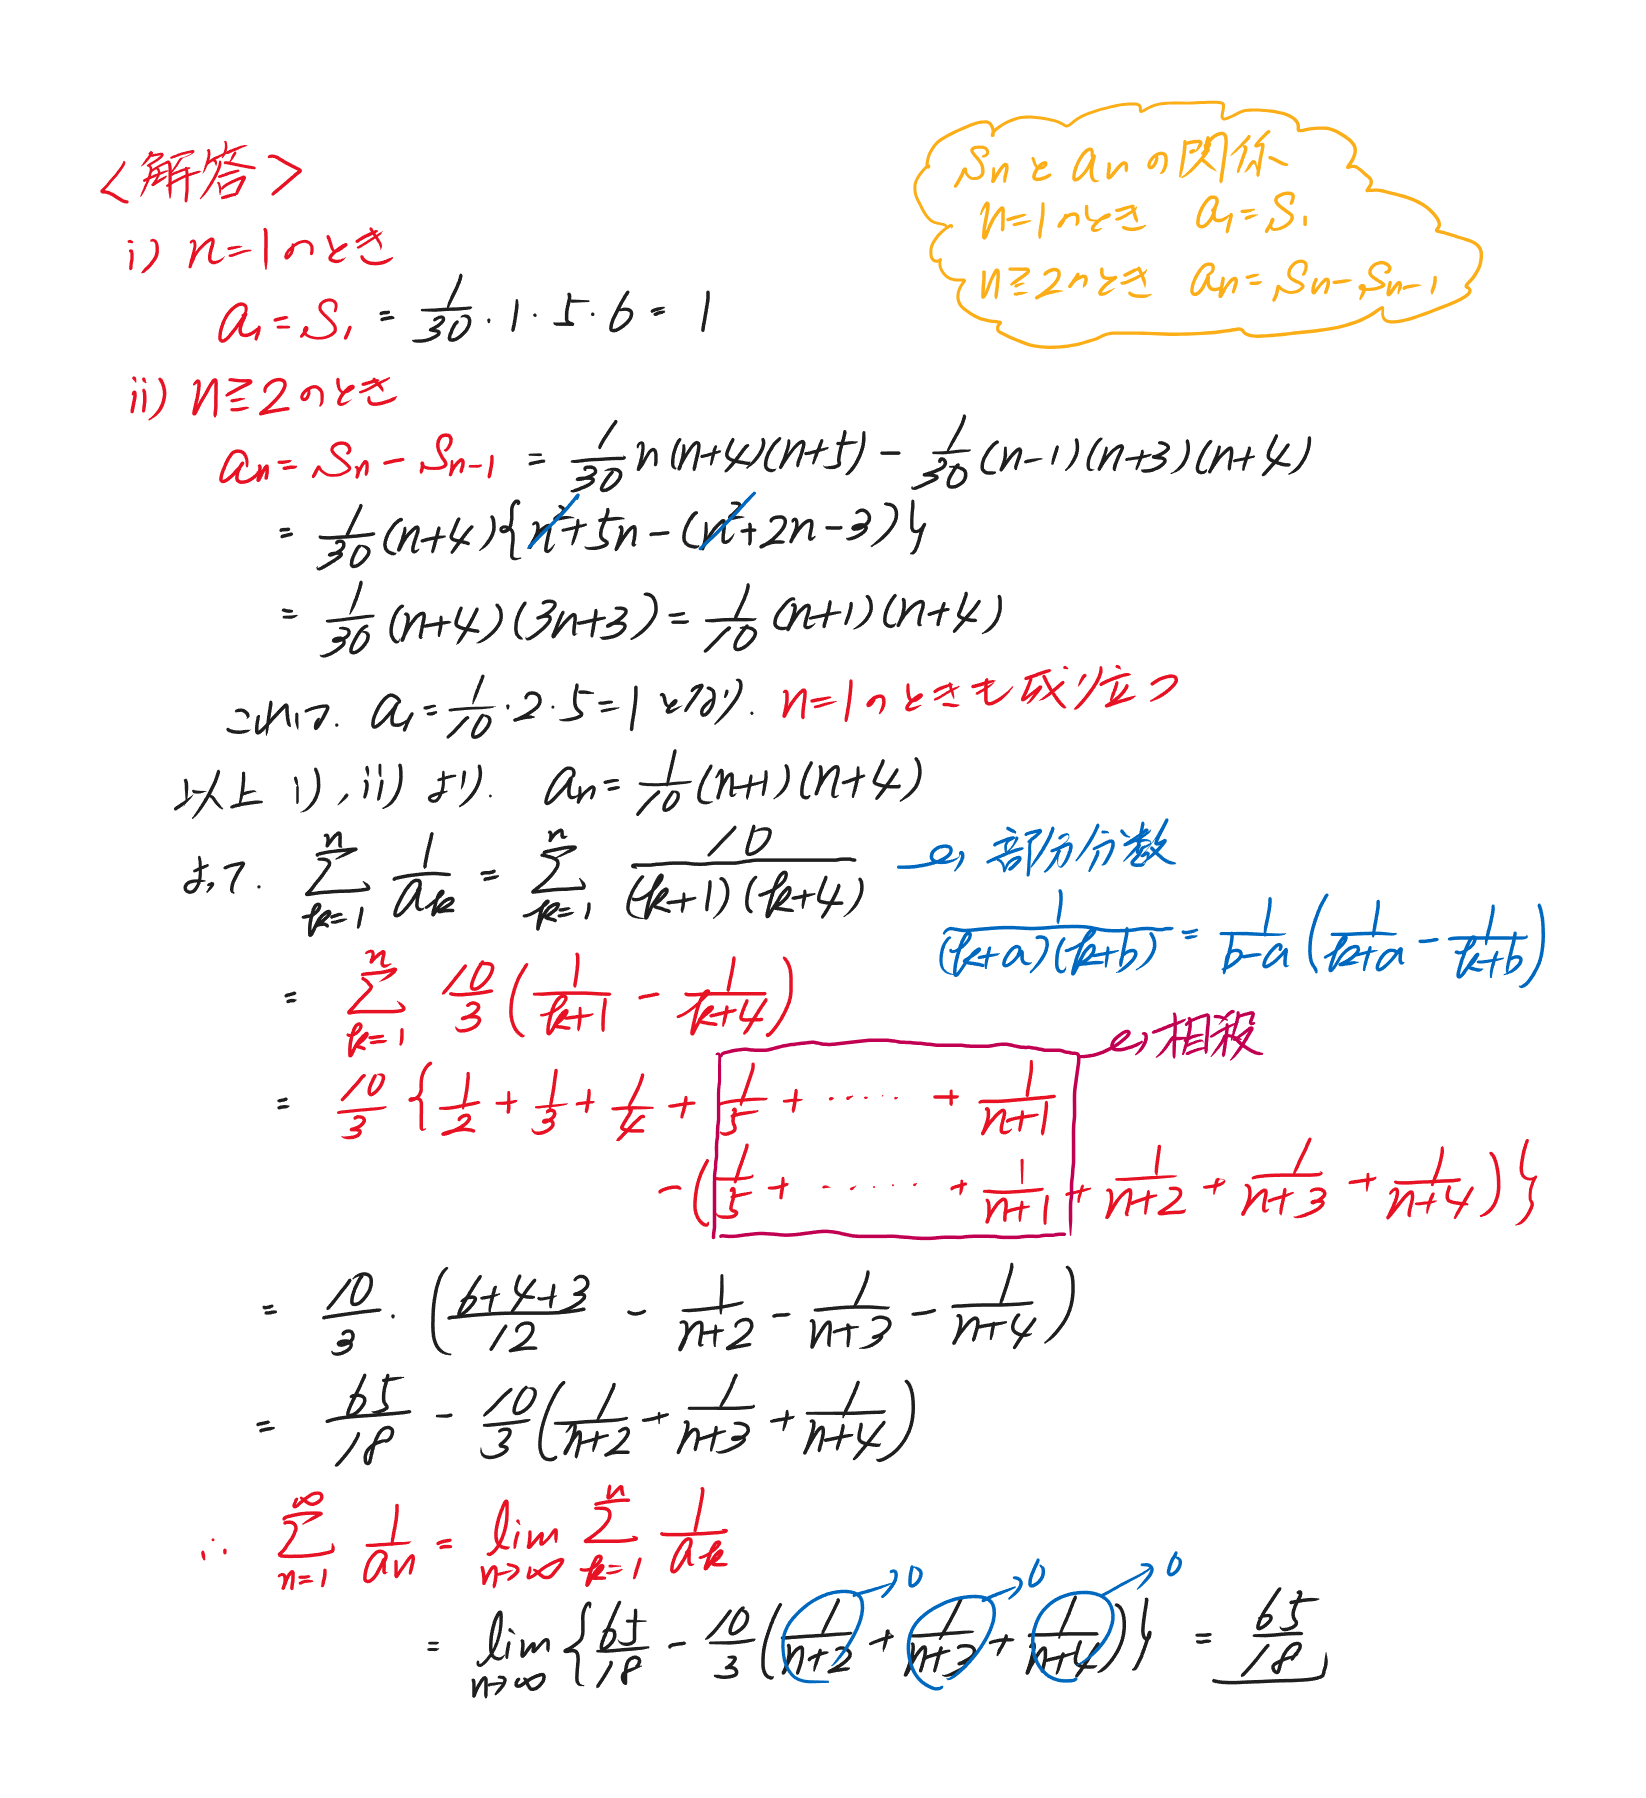 <解答>
Snとanの関係
n=1のとき a₁=S₁
n≧2のとき an=Sn-Sn-1
i) n=1のとき
a₁=S₁ = 1/30・1・5・6 = 1
ii) n≧2のとき
an=Sn-Sn-1 = 1/30 n(n+4)(n+5) - 1/30 (n-1)(n+3)(n+4)
= 1/30 (n+4){n²+5n-(n²+2n-3)}
= 1/30 (n+4)(3n+3) = 1/10 (n+1)(n+4)
これは、a₁=1/10・2・5=1となり、n=1のときも成り立つ
以上 i), ii) より、 an=1/10 (n+1)(n+4)
よって、 Σ[k=1→n] 1/ak = Σ[k=1→n] 10/((k+1)(k+4)) 部分分数
1/((k+a)(k+b)) = 1/(b-a) (1/(k+a) - 1/(k+b))
= Σ[k=1→n] 10/3 (1/(k+1) - 1/(k+4))
相殺
= 10/3 {1/2 + 1/3 + 1/4 + 1/5 + ‥‥‥ + 1/(n+1)
-(1/5 + ‥‥‥ + 1/(n+1) + 1/(n+2) + 1/(n+3) + 1/(n+4))}
= 10/3・((6+4+3)/12 - 1/(n+2) - 1/(n+3) - 1/(n+4))
= 65/18 - 10/3 (1/(n+2) + 1/(n+3) + 1/(n+4))
∴ Σ[n=1→∞] 1/an = lim[n→∞] Σ[k=1→n] 1/ak
→0 →0 →0
= lim[n→∞] {65/18 - 10/3 (1/(n+2) + 1/(n+3) + 1/(n+4))} = 65/18